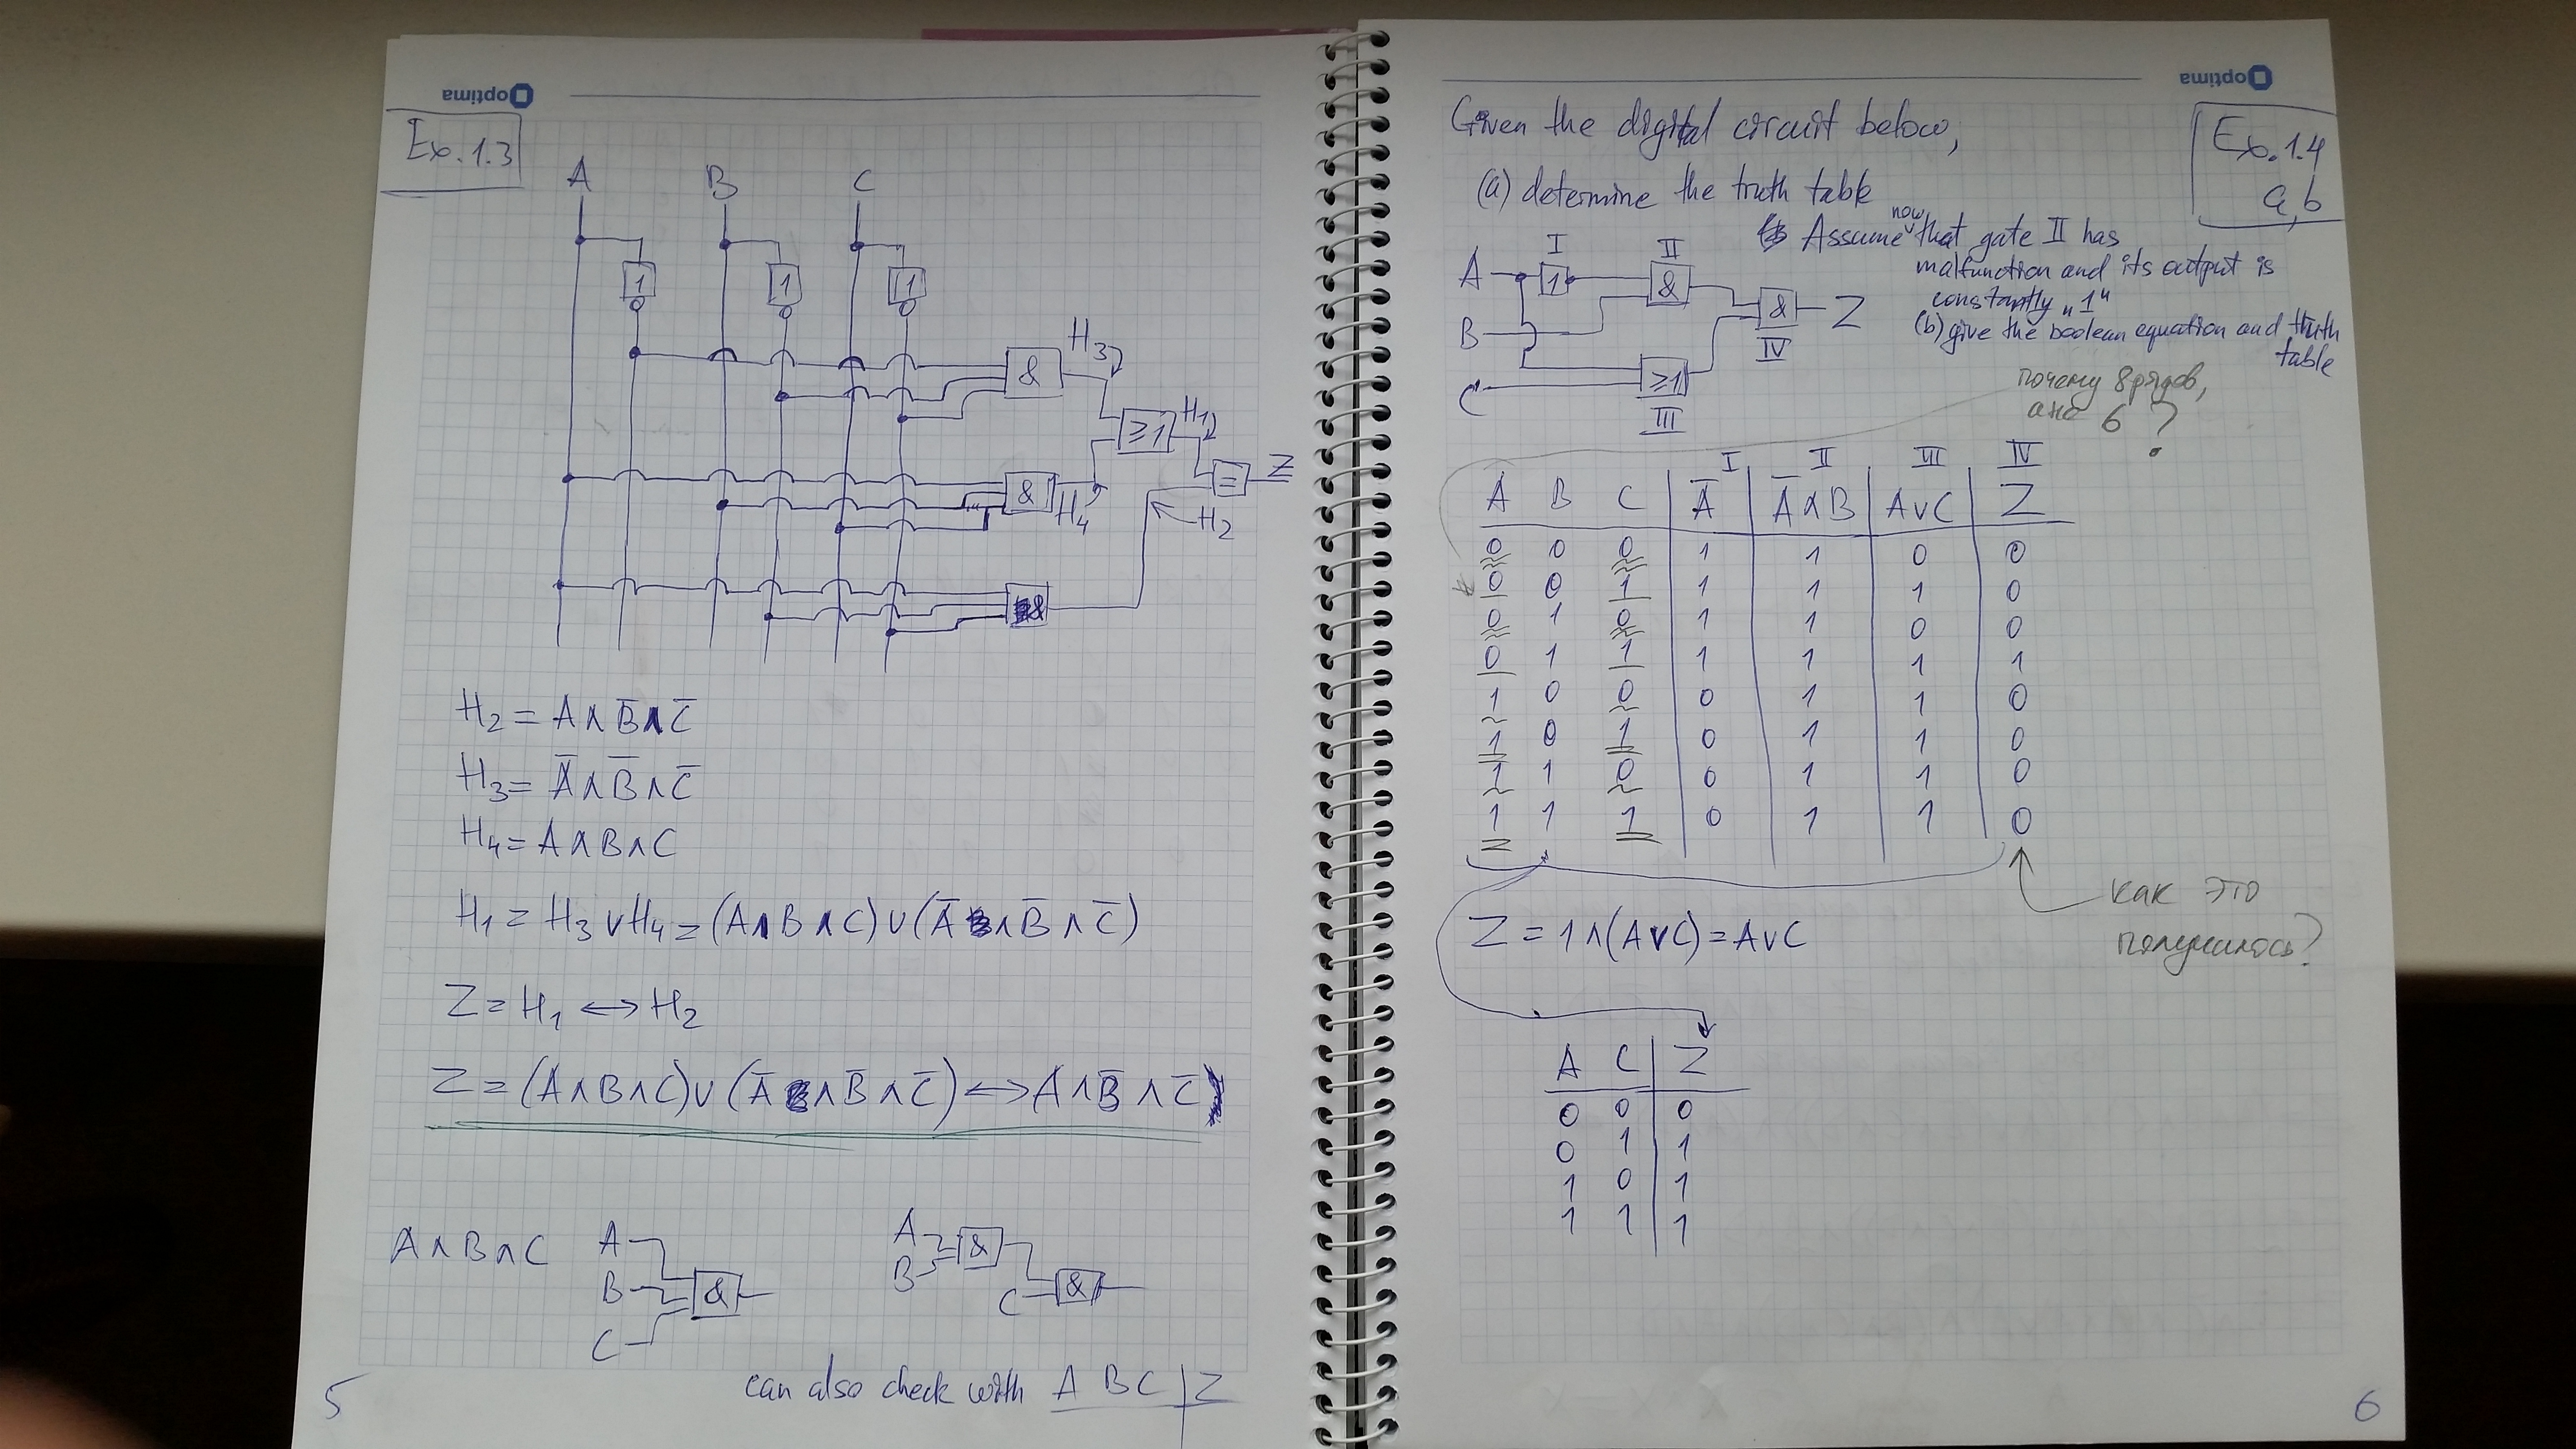 optima
Ex. 1.3
A B C
1 1 1
& H3
≥1 H1
& H4
= Z
H2
&
H2 = A∧B̅∧C̅
H3 = A̅∧B̅∧C̅
H4 = A∧B∧C
H1 = H3 ∨ H4 = (A∧B∧C)∨(A̅∧B̅∧C̅)
Z = H1 ↔ H2
Z = (A∧B∧C)∨(A̅∧B̅∧C̅) ↔ A∧B̅∧C̅
A∧B∧C
A
B &
C
A
B &
C &
can also check with A B C | Z
5
optima
Given the digital circuit below,
Ex. 1.4
a, b
(a) determine the truth table
Assume now that gate II has
malfunction and its output is
constantly „1"
(b) give the boolean equation and truth
table
A I 1 II &
B & Z
IV
C ≥1
III
почему 8 рядов,
а не 6?
I II III IV
A B C A̅ A̅∧B A∨C Z
0 0 0 1 1 0 0
0 0 1 1 1 1 0
0 1 0 1 1 0 0
0 1 1 1 1 1 1
1 0 0 0 1 1 0
1 0 1 0 1 1 0
1 1 0 0 1 1 0
1 1 1 0 1 1 0
как это
получилось?
Z = 1∧(A∨C) = A∨C
A C Z
0 0 0
0 1 1
1 0 1
1 1 1
6